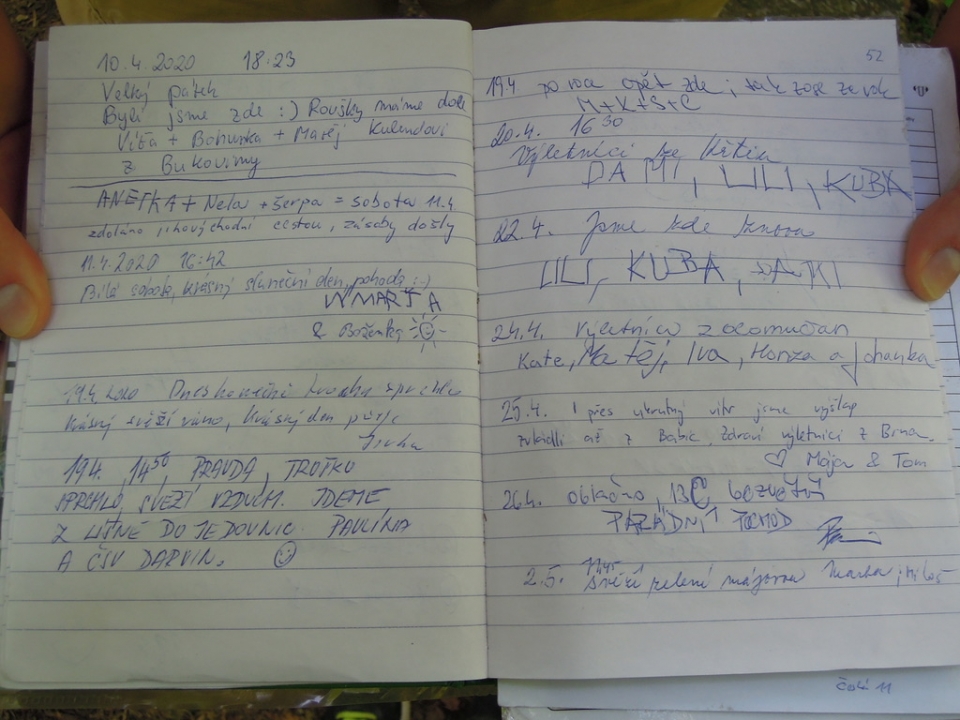 10.4.2020 18:23
Velký pátek
Byli jsme zde :) Roušky máme dole
Víťa + Bohunka + Matěj Kulendovi
z Bukoviny
ANETKA + Nela + šerpa = sobota 11.4.
zdoláno jihovýchodní cestou, zásoby došly
11.4.2020 16:42
Bílá sobota, krásný sluneční den, pohoda :-)
MARTA
& Boženka
19.4.2020 Dnes konečně trochu sprchlo
krásný svěží ráno, krásný den
19.4. 14:50, PRAVDA, TROŠKU
SPRCHLO, SVĚŽÍ VZDUCH. JDEME
Z LÍŠNĚ DO JEDOVNIC. PAULÍNA
A ČSV DARVIN.
52
19.4 po roce opět zde, tak zase za rok
M+K+S+C
20.4. 16 30
Výletníci ze
DAMI, LILI, KUBA
22.4. Jsme zde znova
LILI, KUBA,
24.4. Výletníci z Olomučan
Kate, Matěj, Iva, Honza a Johanka
25.4. I přes ukrutný vítr jsme výšlap
zvládli až z Babic, Zdraví výletníci z Brna.
♡ Mája & Tom
26.4. oblačno, 13°C, bezvětří
PARÁDNÍ POCHOD
2.5. 11:45 Svěží zelení májovou
Část 11